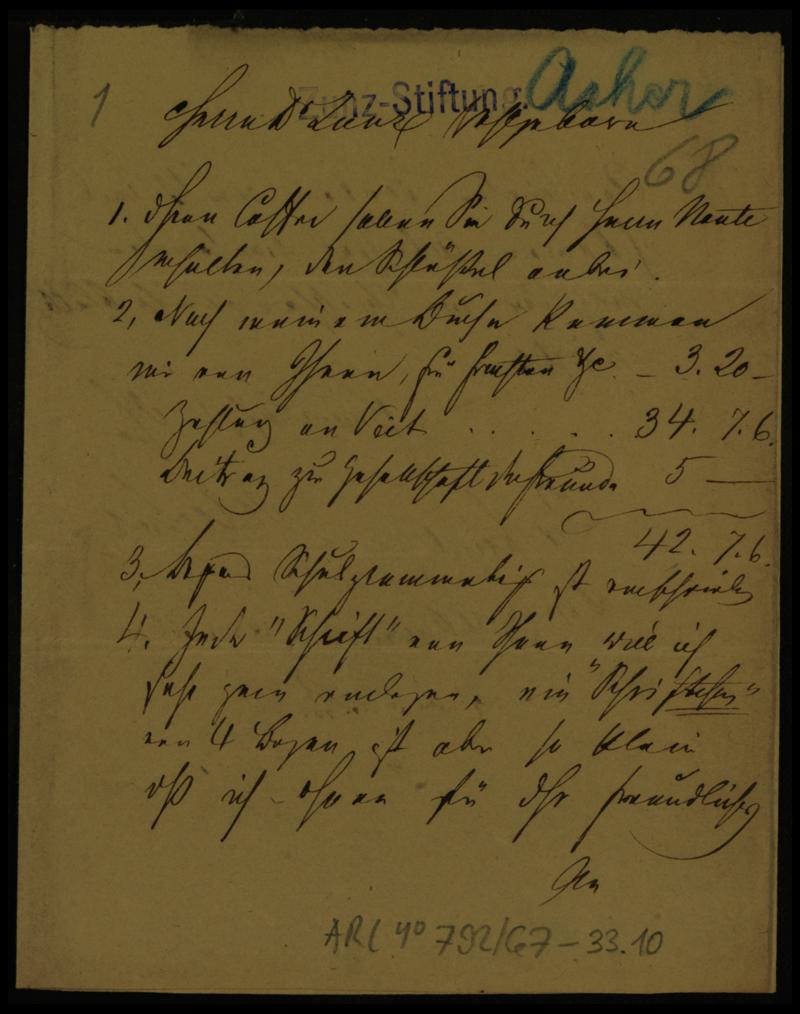 1
Zunz-Stiftung.
Asher
Herrn Dr Zunz Wohlgeboren
68
1. Ihren Coffre haben Sie durch Herrn
erhalten, den Schlüssel anbei.
2, Nach meinem Buche kommen
mir von Ihnen, für Frachten &c. – 3. 20 –
Zahlung an Veit . . . . . 34. 7. 6.
Beitrag zur Gesellschaft der Freunde 5 —
42. 7. 6.
3, Schulgrammatik ist verschrieben
4. Jede "Schrift" von Ihnen will ich
sehr gern verlegen, ein "Schriftchen"
von 4 Bogen ist aber so klein
daß ich – Ihnen für Ihr freundliches
An
ARC 4° 792/G7-33.10